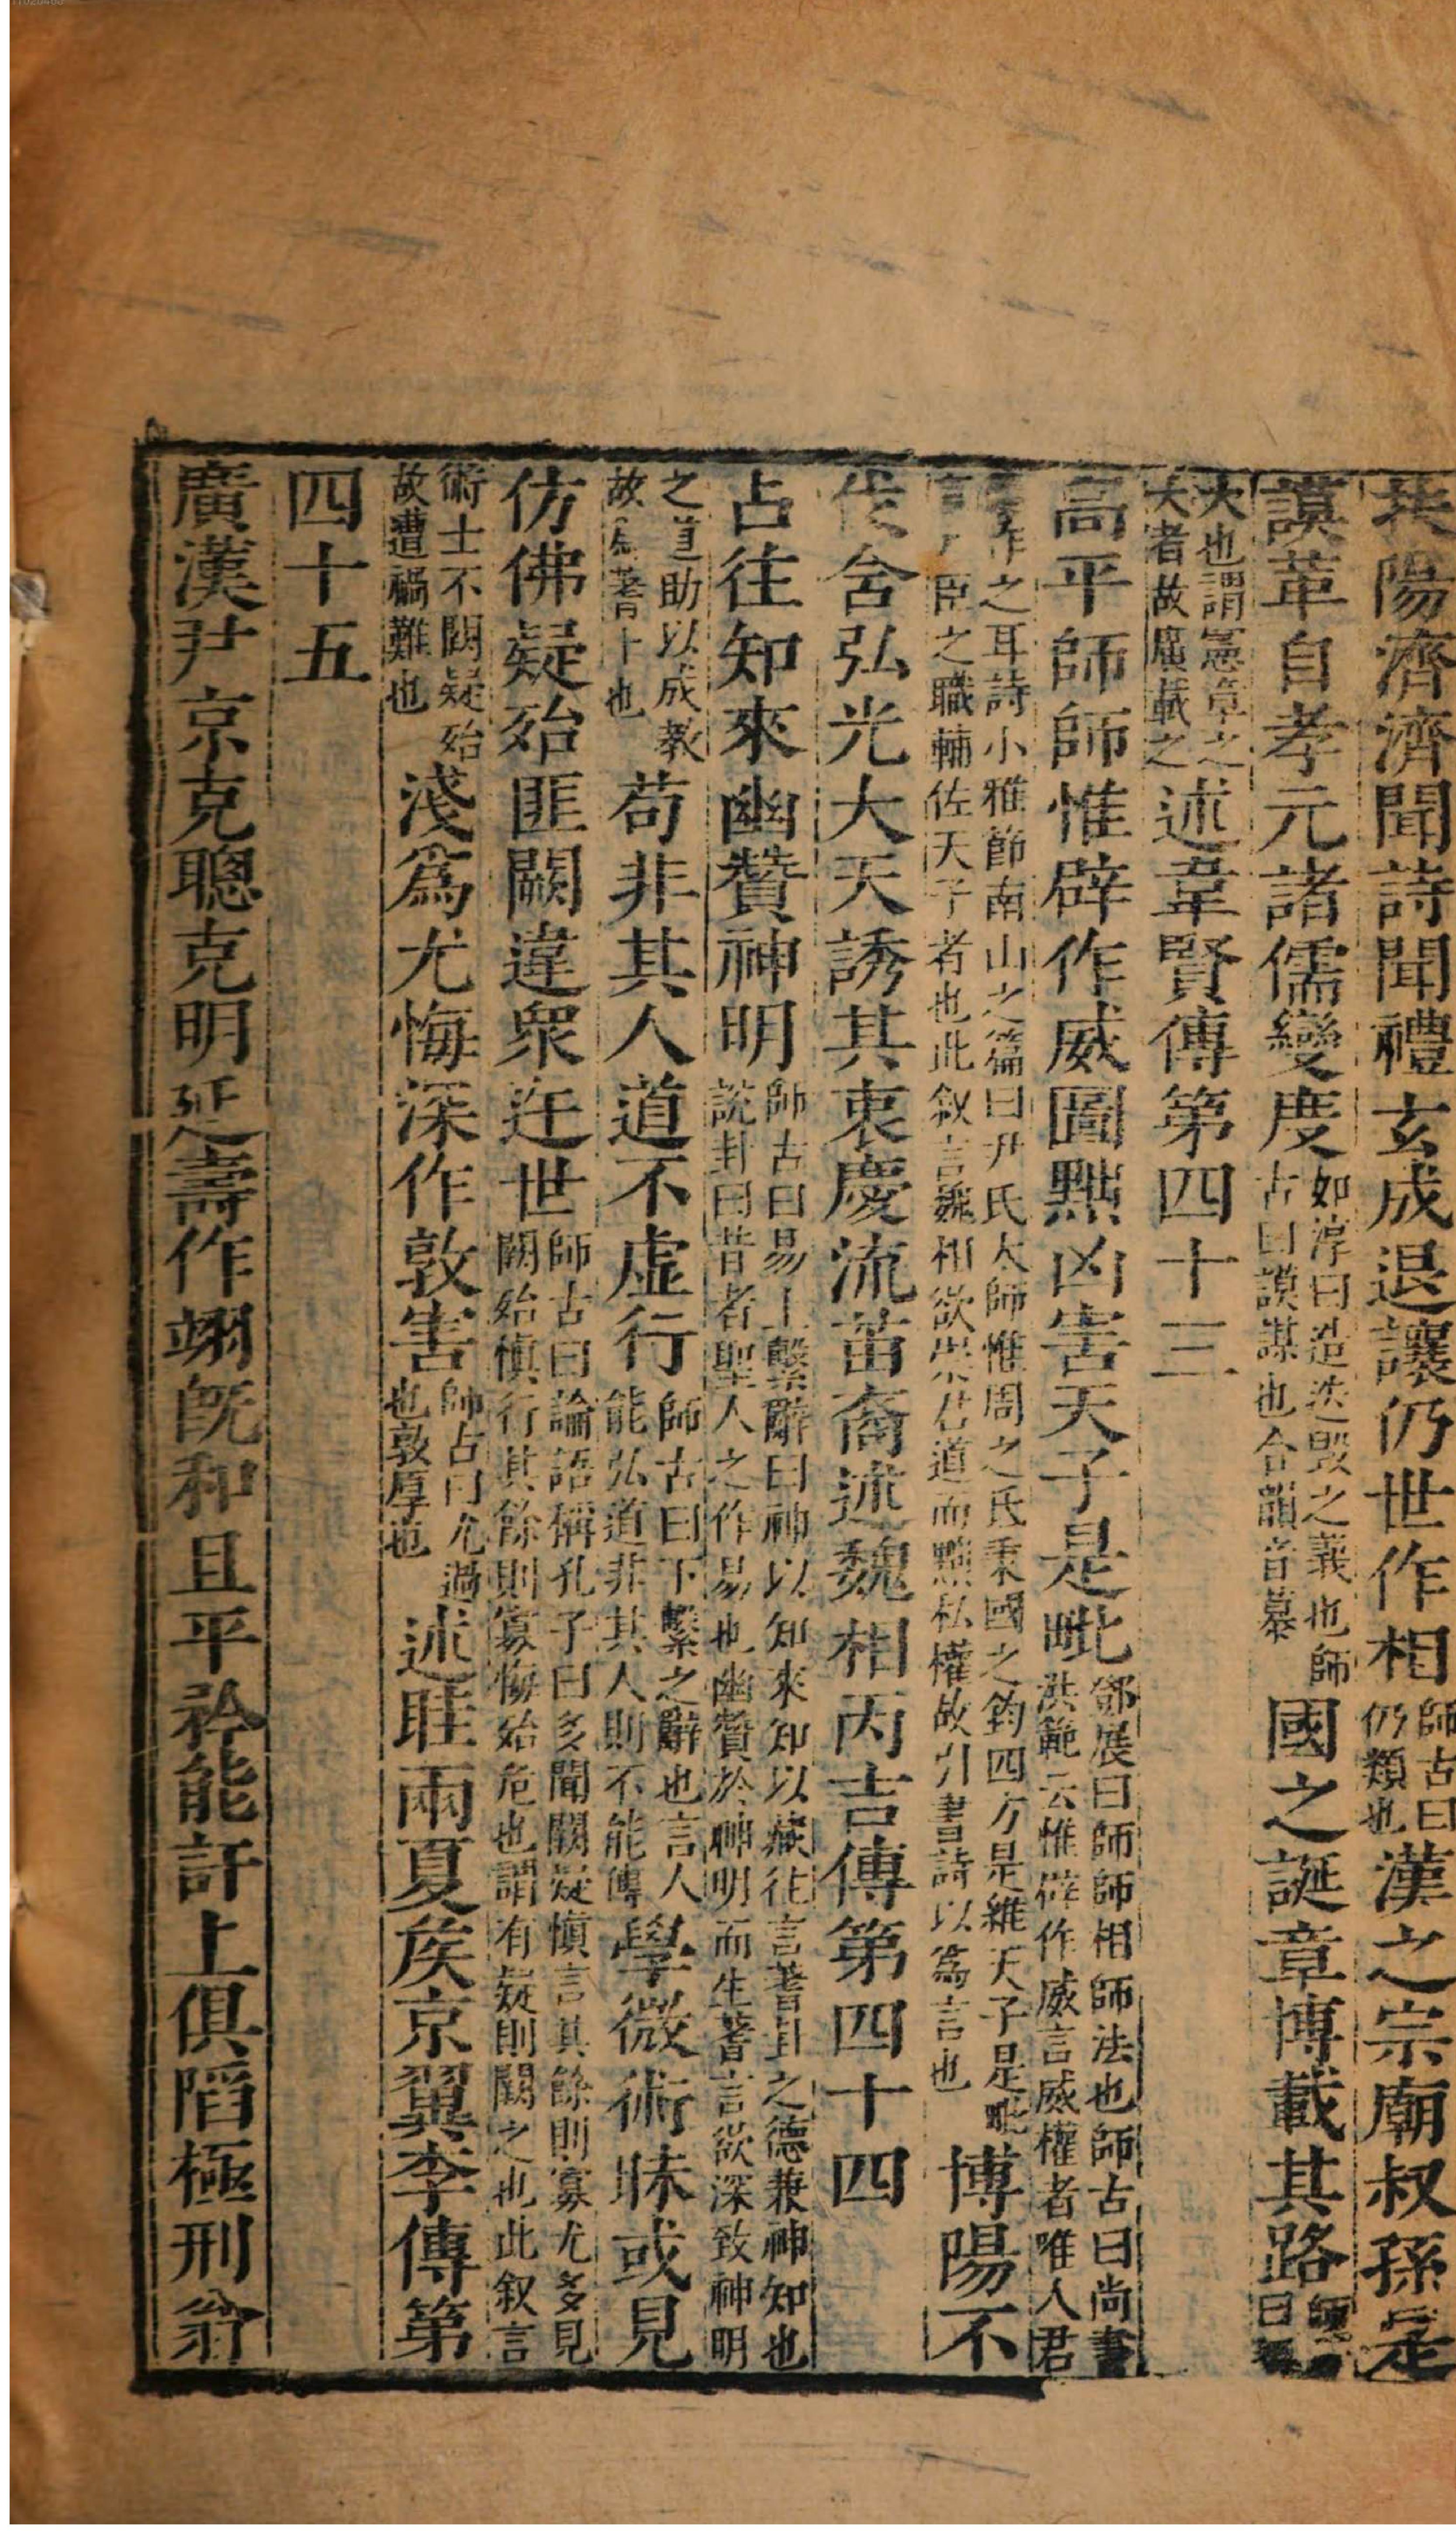 扶陽濟濟聞詩聞禮玄成退讓仍世作相師古曰仍類也漢之宗廟叔孫是
謨革自孝元諸儒變度如淳曰造迭毀之義也師古曰謨謀也合韻音慕國之誕章博載其路師古曰
大也謂憲章之大者故廣載之述韋賢傳第四十三
高平師師惟辟作威圖黜凶害天子是毗鄧展曰師師相師法也師古曰尚書洪範云惟辟作威言威權者唯人君
作之耳詩小雅節南山之篇曰尹氏大師惟周之氐秉國之鈞四方是維天子是毗言大臣之職輔佐天子者也此叙言魏相欲崇君道而黜私權故引書詩以爲言也博陽不
伐含弘光大天誘其衷慶流苗裔述魏相丙吉傳第四十四
占往知來幽贊神明師古曰易上繫辭曰神以知來知以藏往言蓍卦之德兼神知也說卦曰昔者聖人之作易也幽贊於神明而生蓍言欲深致神明
之道助以成教故爲蓍卜也苟非其人道不虛行師古曰下繫之辭也言人能弘道非其人則不能傳學微術昧或見
仿佛疑殆匪闕違衆迕世師古曰論語稱孔子曰多聞闕疑慎言其餘則寡尤多見闕殆慎行其餘則寡悔殆危也謂有疑則闕之也此叙言
術士不闕疑殆故遭禍難也淺爲尤悔深作敦害師古曰尤過也敦厚也述眭兩夏侯京翼李傳第
四十五
廣漢尹京克聰克明延壽作翊旣和且平矜能訐上俱䧟極刑翁